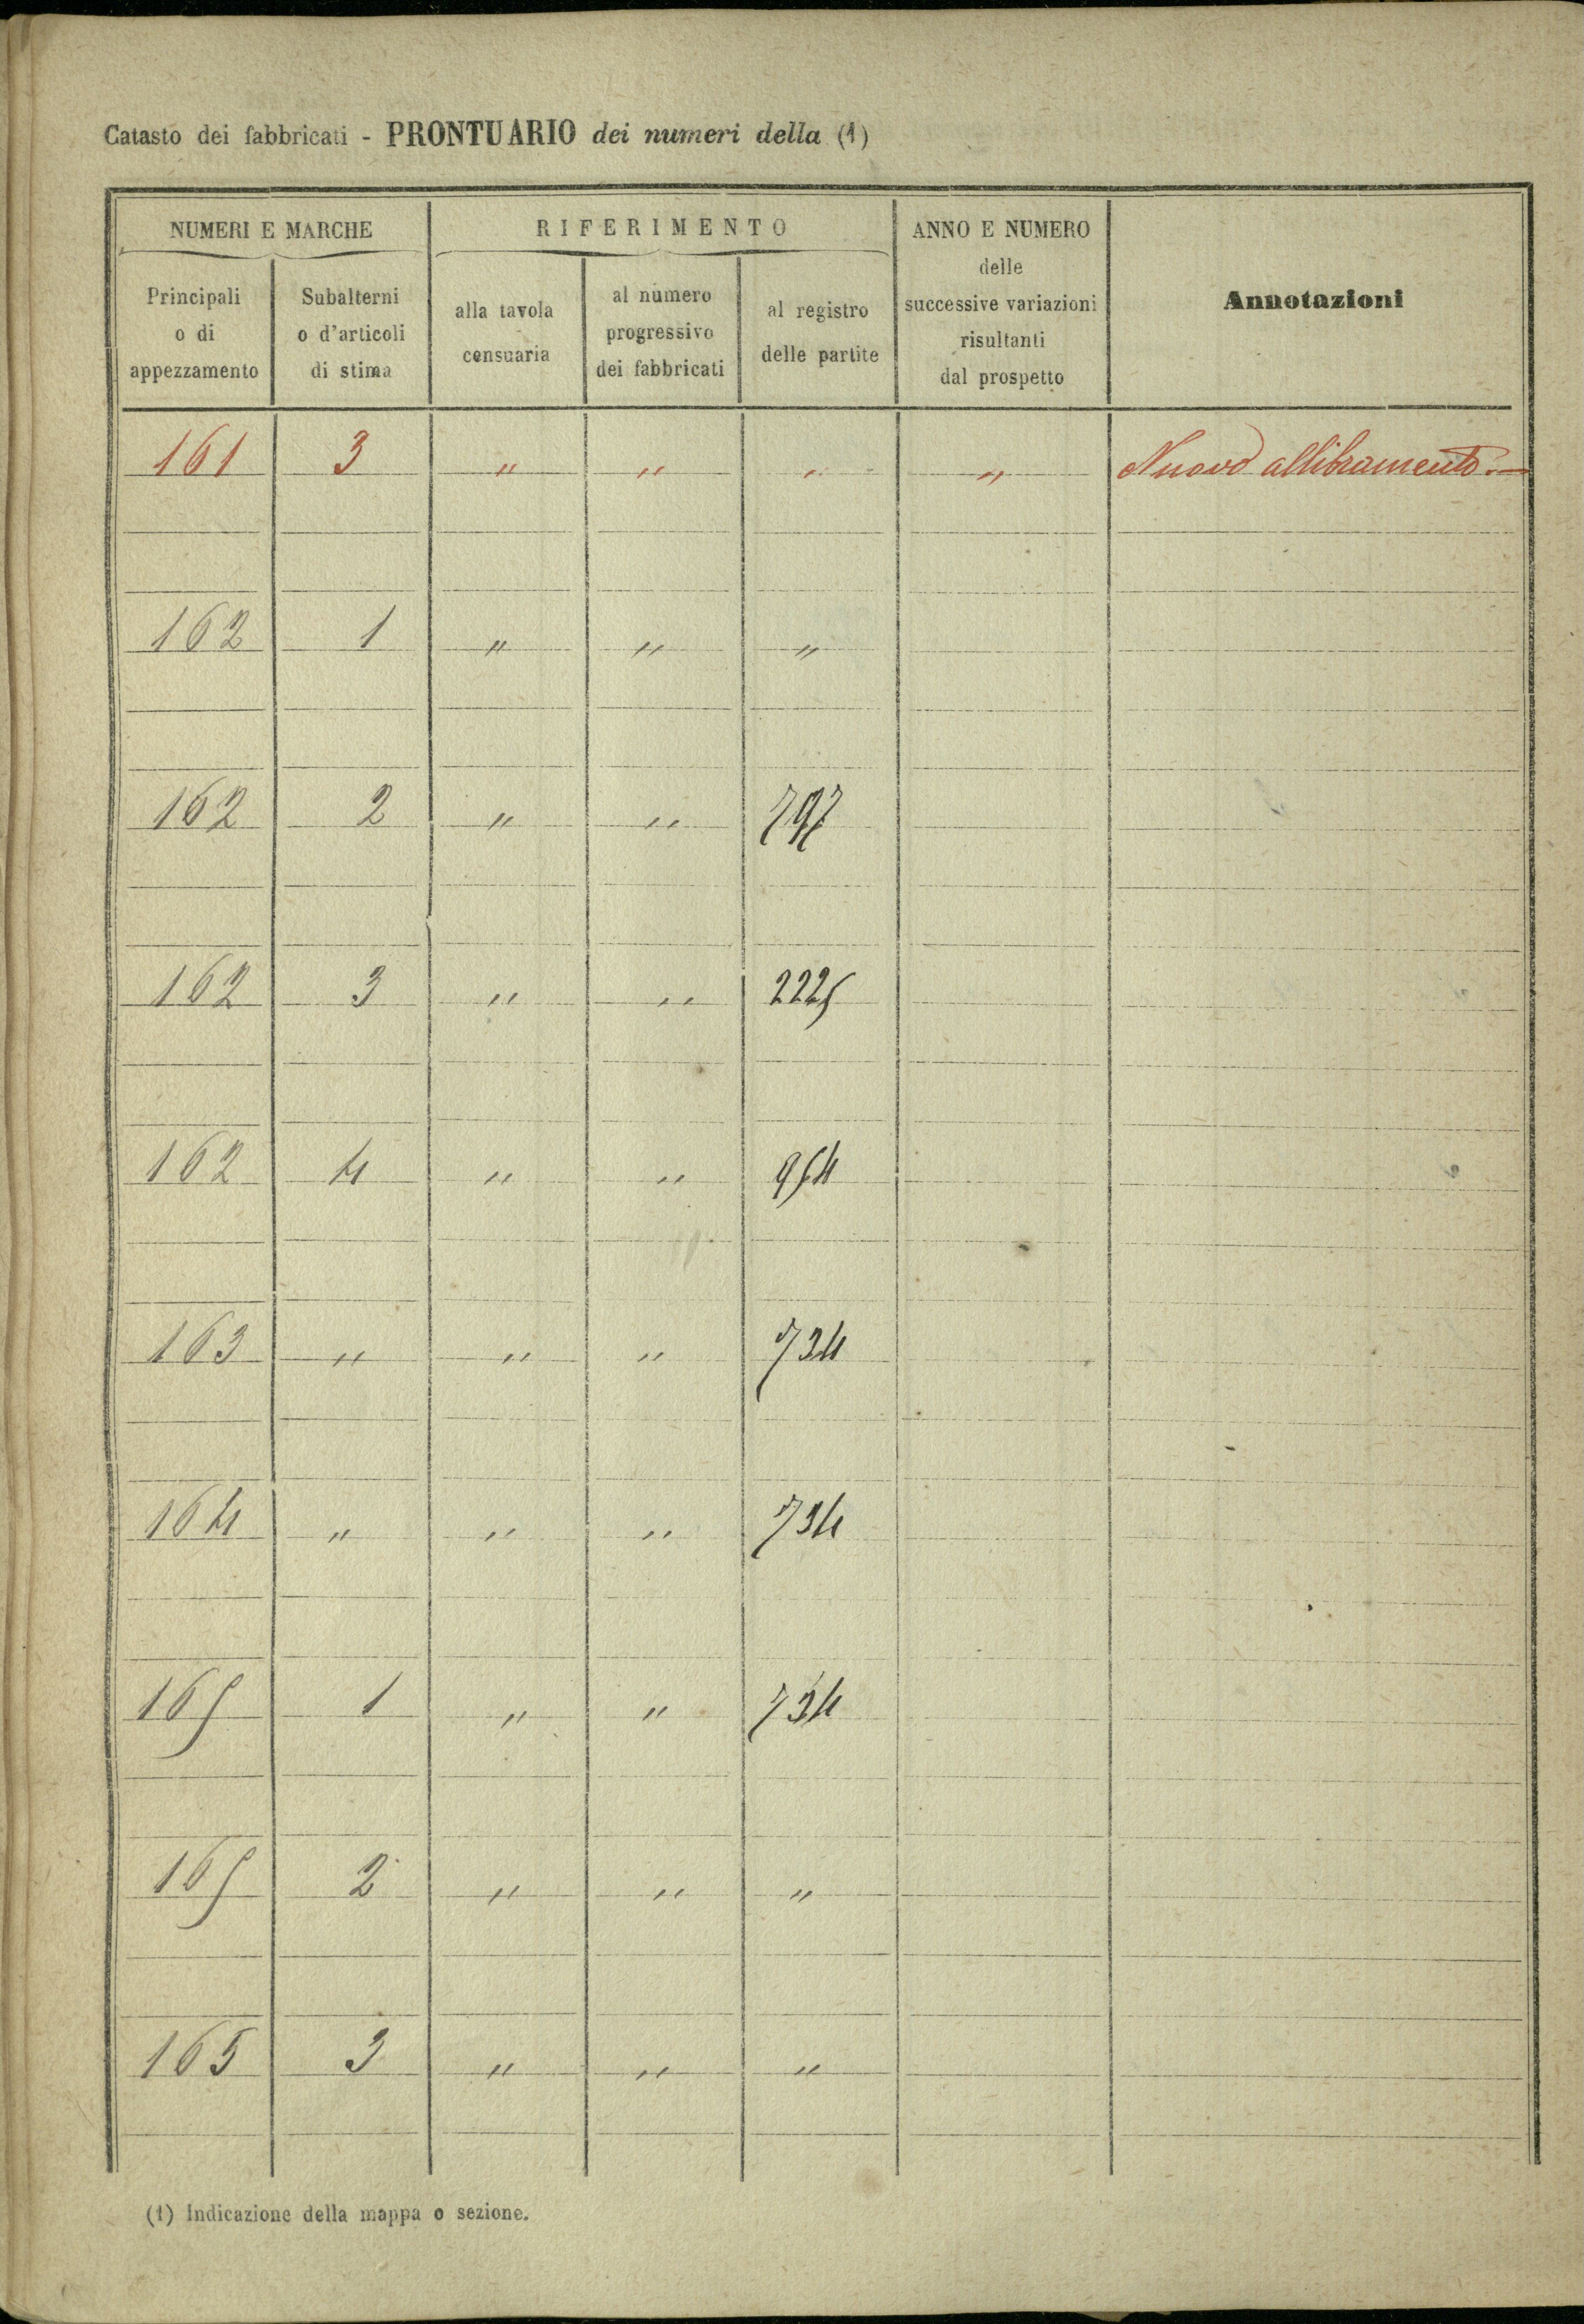 Catasto dei fabbricati - PRONTUARIO dei numeri della (1)
NUMERI E MARCHE
RIFERIMENTO
ANNO E NUMERO
delle
successive variazioni
risultanti
dal prospetto
Annotazioni
Principali
o di
appezzamento
Subalterni
o d'articoli
di stima
alla tavola
censuaria
al numero
progressivo
dei fabbricati
al registro
delle partite
161 3 " " " " Nuovo allibramento.—
162 1 " " "
162 2 " " 797
162 3 " " 2225
162 4 " " 954
163 " " " 734
164 " " " 734
165 1 " " 734
165 2 " " "
165 3 " " "
(1) Indicazione della mappa o sezione.